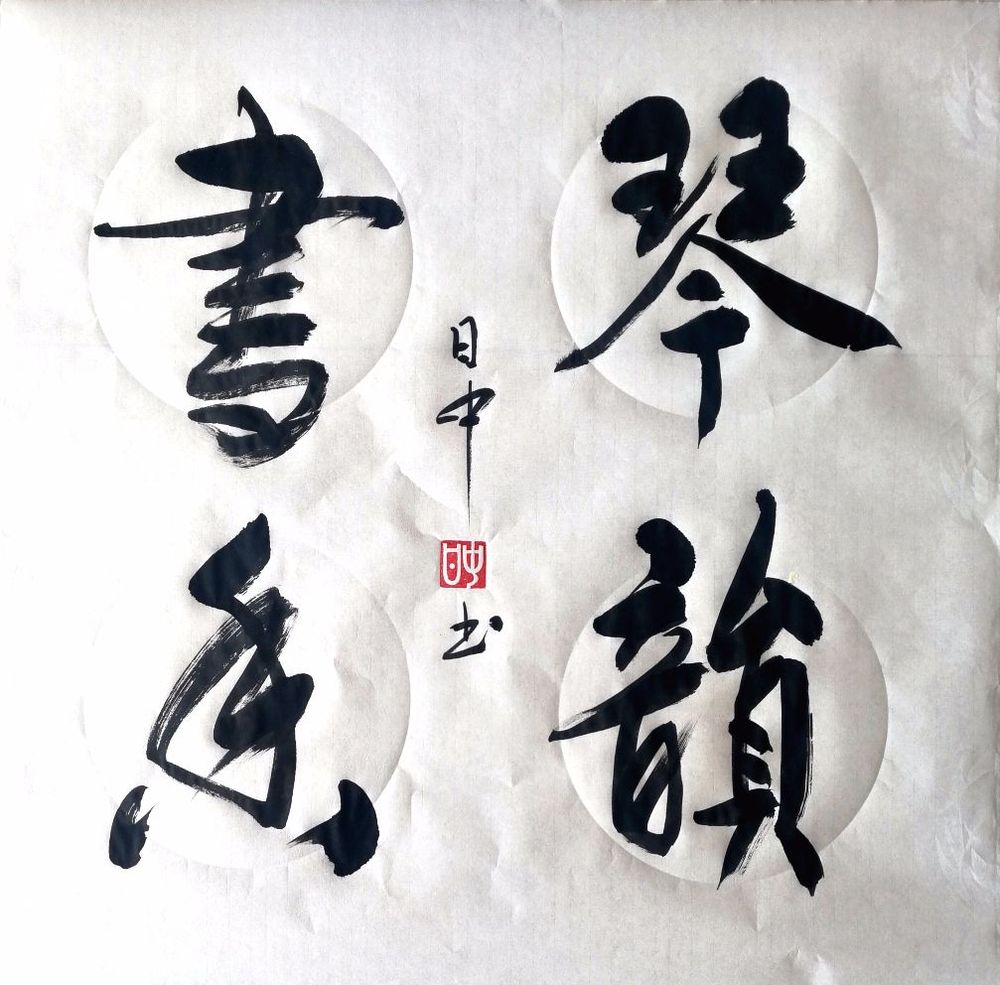 琴韻
書香
日中
书